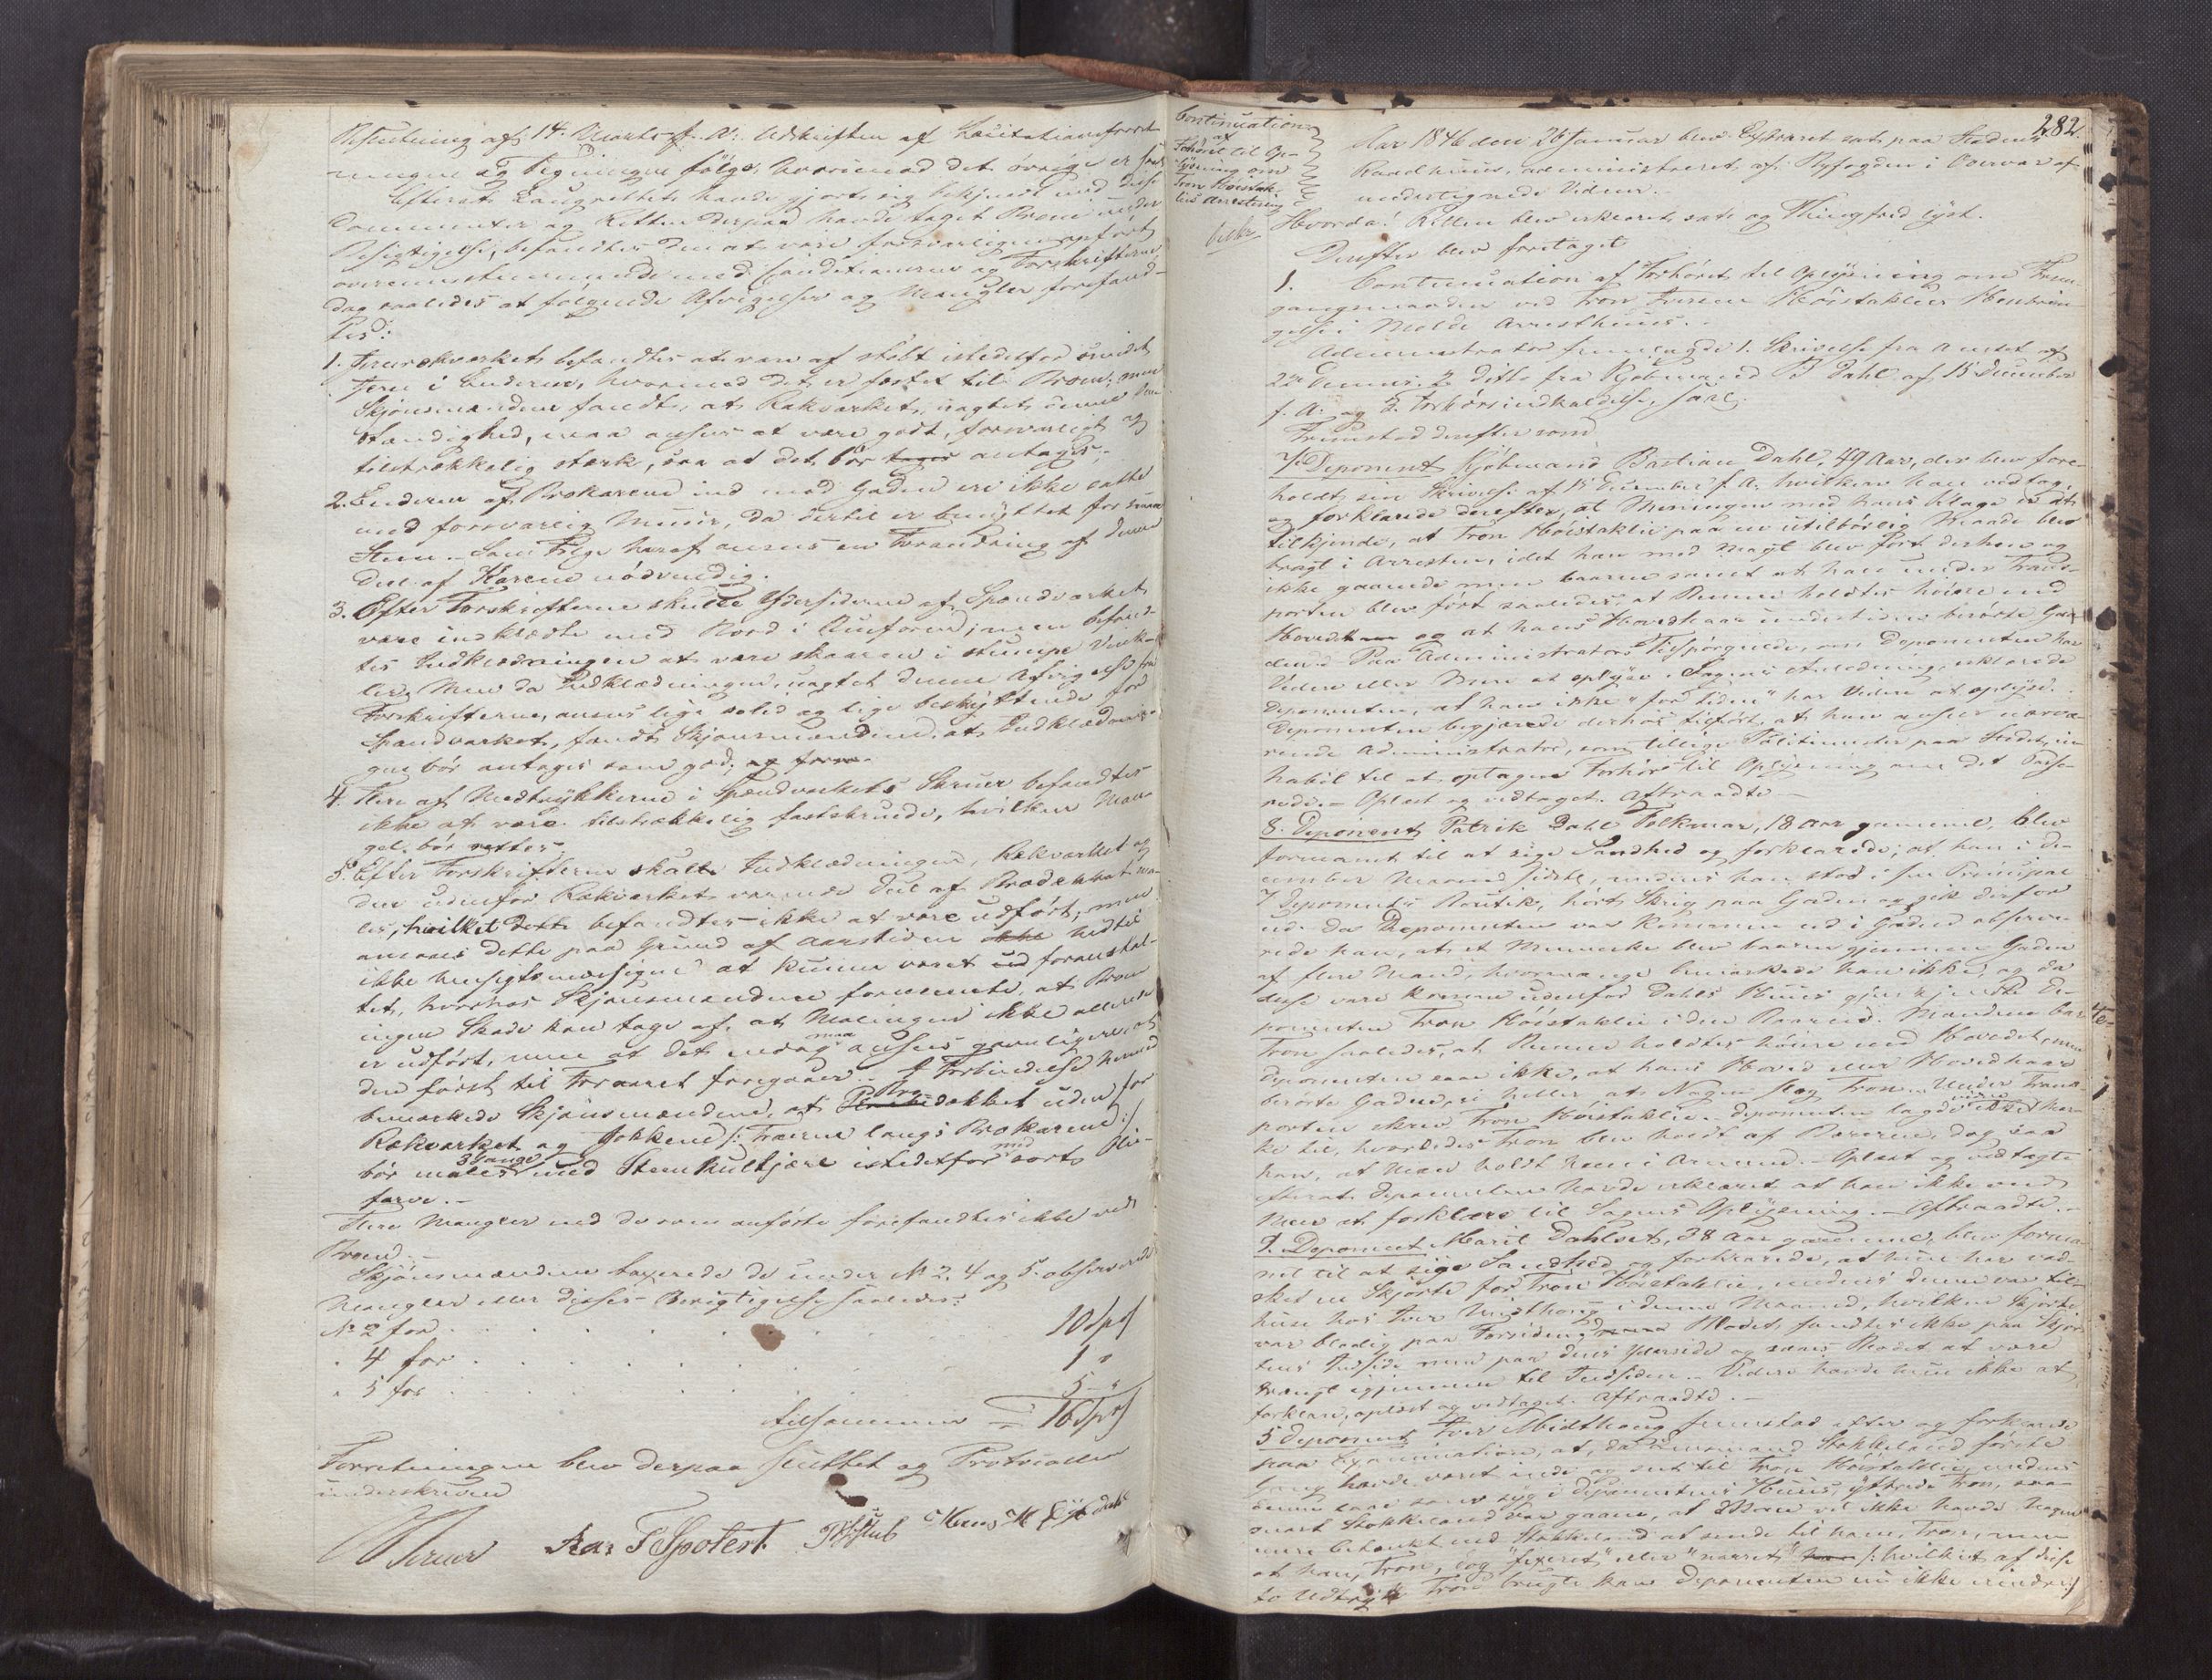 Resolutning af 14. Marts f. A. Udskriften af Licitationsforret-
ningen og Tegningen følge, hvorimod det øvrige er
Efterat Laugrettet havde gjort sig bekjendt med disse
Documenter og Retten derpaa havde taget Broen under
Besigtigelse, befandtes den at være forsvarligen opført
overeensstemmende med Conditionerne og Forskrifterne
dog saaledes at følgende Afvigelser og Mangler forefand-
tes:
1. Jernrekværket befandtes at være af støbt istedetfor smedet
Jern i Enderne, hvormed det er fæstet til Broen; men
Skjønsmændene fandt, at Rækværket, uagtet denne Om-
stændighed, maa ansees at være godt, forsvarligt og
tilstrækkelig stærk, saa at det bør antages.
2. Enderne af Brokarene ind mod Gaden ere ikke satte
med forsvarlig Muur, da dertil er benyttet for smaa
Steen. Som Følge heraf ansees en Forandring af denne
Deel af Karene nødvendig.
3. Efter Forskrifterne skulle Ydersiderne af Spændværket
være indklædte med Bord i Buform; men befand-
tes Indklædningen at være skaaren i stumpe Vink-
ler. Men da Indklædningen, uagtet denne Afvigelse fra
Forskrifterne, ansees lige solid og lige beskyttende for
Spændværket, fandt Skjønsmændene, at Indklædnin-
gen bør antages som god.
4. Flere af Medtrykkerne i Spændværkets Skruer befandtes
ikke at være tilstrækkelig fastskruede, hvilken Man-
gel bør rettes.
5. Efter Forskrifterne skulle Indklædningen, Rækværket og
den udenfor Rækværket værende Deel af Brodækket ma-
les, hvilket befandtes ikke at være udført; men
ansees dette paa Grund af Aarstiden indtil
ikke hensigtsmæssigen at kunne været foranstal-
tet, hvorhos Skjønsmændene formeente, at Broen
ingen Skade kan tage af, at Malingen ikke allerede
er udført, men at det endog maa ansees gavnligere at
den først til Foraaret foregaaer. I Forbindelse hermed
bemærkede Skjønsmændene, at Brodækket uden for
Rækværket og Jokkene /: Træerne langs Brokarene :/
bør males 3 Gange med Steenkultjære istedetfor med sort Olie-
farve.
Flere Mangler end de oven anførte forefandtes ikke ved
Broen.
Skjønsmændene taxerede de under No 2, 4 og 5 observerede
Mangler eller disses Berigtigelse saaledes:
No 2 for . . . . . 10 Spd
" 4 for . . . . . 1 "
" 5 for . . . . . 5 "
tilsammen = 16 Spd
Forretningen blev derpaa sluttet og Protocollen
underskreven
282.
Continuation
af
Forhøret til Op-
lysning om
Tron Höistak-
lies Arrestering
Aar 1846 den 26 Januar blev Extraret sat paa Stadens
Raadhuus, administreret af Byfogden i Overvær af
undertegnede Vidner.
Hvorda! Retten blev erklæret sat og Thingfred lyst.
Derefter blev foretaget
1. Continuation af Forhöret til Oplysning om Frem-
gangsmaaden ved Tron Iversen Höistaklies Henbrin-
gelse i Molde Arresthuus.
Administrator fremlagde 1. Skrivelse fra Amtet af
22de Dennes. 2. ditto fra Kjöbmand B Dahl af 15 December
f. A. og 3. Forhörsindkaldelse, saal.
Fremstod derefter som
7de Deponent Kjöbmand Bastian Dahl, 49 Aar, der blev fore-
holdt sin Skrivelse af 15 December f. A. hvilken han vedtog,
og forklarede derefter, at Meningen med hans Klage er at
tilkjende, at Tron Höistaklie paa en utilbörlig Maade blev
bragt i Arresten, idet han med Magt blev fört derhen og
ikke gaaende men baaren samt at han under Trans-
porten blev fört saaledes, at Benene holdtes höiere end
Hovedet og at hans Hovedhaar undertiden berörte Ga-
den. Paa Administrators Tilspörgende, om Deponenten har
Videre eller Mere at oplyse i Sagens Anledning, erklærede
Deponenten, at han ikke "for tiden" har Videre at oplyse.
Deponenten begjærede derhos tilfört, at han anseer nærvæ-
rende Administrator, som tillige Politimester paa Stedet, in-
habil til at optagen Forhör til Oplysning om det Passe-
rede. Oplæst og vedtaget. Aftraadte.
8. Deponent Patrik Dahl Folkman, 18 Aar gammel, blev
formanet til at sige Sandhed og forklarede, at han i De-
cember Maaned sidstl., medens han stod i sin Principal
7 Deponents Boutik, hört Skrig paa Gaden og gik derfor
ud. Da Deponenten var kommen ud i Gaden observe-
rede han, at et Menneske blev baaren gjennem Gaden
af flere Mænd, hvormange bemærkede han ikke, og da
disse vare komne udenfor Dahls Huus gjenkjendte De-
ponenten Tron Höistaklie i den Baarne. Mændene bar
Tron saaledes, at Benene holdtes höiere end Hovedet, men
Deponenten saae ikke, at hans Hoved eller Hovedhaar
berörte Gaden, ei heller at Nogen slog Tron. Under Trans-
porten skreg Tron Höistaklie. Deponenten lagde ikke Mær-
ke til, hvorledes Tron blev holdt af Bærerne, dog saa
han, at Man holdt ham i Armene. Oplæst og vedtaget
efterat Deponenten havde erklæret at han ikke veed
Mere at forklare til Sagens Oplysning. Aftraadte.
9. Deponent Marit Dahlset, 38 Aar gammel, blev forma-
net til at sige Sandhed og forklarede, at hun har vad-
sket en Skjorte for Tron Höistaklie medens denne var til-
huse hos Iver Midthoug i denne Maaned, hvilken Skjorte
var blodig paa Forsiden. Blodet fandtes ikke paa Skjor-
tens Indside men paa dens Yderside og saaes Blodet at være
trængt igjennem til Indsiden. Videre havde hun ikke at
forklare, oplæst og vedtaget. Aftraadte.
5 Deponent Iver Midthoug fremstod efter og forklarede
paa Examination, at, da Lensmand Stokkeland förste
Gang havde været inde og seet til Tron Höistaklie medens
denne laae som syg i Deponentens Huus, yttrede Tron, saa-
snart Stokkeland var gaaen, at Man vel ikke havde noget
mere betænkt end Stokkeland at sende til ham, Tron, men
at han, Tron, dog "fixeret" eller "narret" /: hvilket af disse
to Udtryk Tron brugte kan Deponenten nu ikke erindre :/